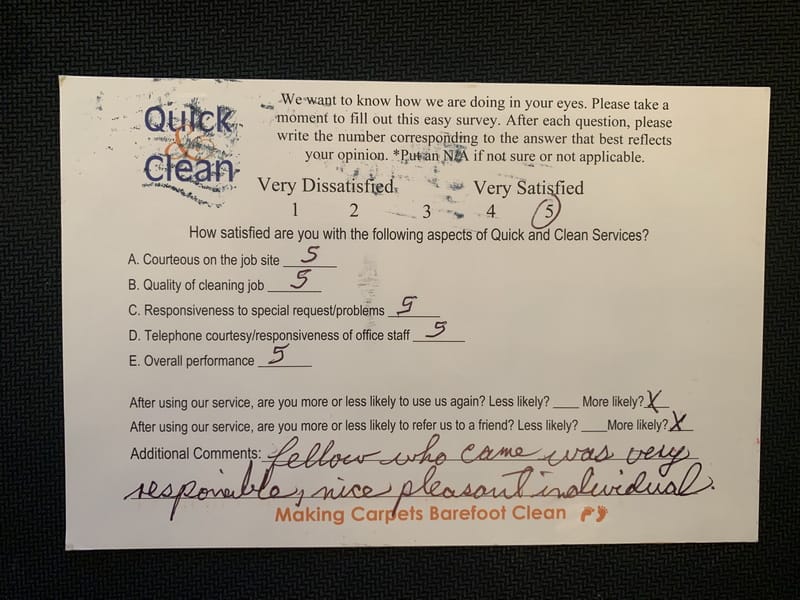 Quick
&
Clean
We want to know how we are doing in your eyes. Please take a
moment to fill out this easy survey. After each question, please
write the number corresponding to the answer that best reflects
your opinion. *Put an N/A if not sure or not applicable.
Very Dissatisfied Very Satisfied
1 2 3 4 5
How satisfied are you with the following aspects of Quick and Clean Services?
A. Courteous on the job site 5
B. Quality of cleaning job 5
C. Responsiveness to special request/problems 5
D. Telephone courtesy/responsiveness of office staff 5
E. Overall performance 5
After using our service, are you more or less likely to use us again? Less likely? ___ More likely? X
After using our service, are you more or less likely to refer us to a friend? Less likely? ___ More likely? X
Additional Comments: fellow who came was very
responsible, nice pleasant individual.
Making Carpets Barefoot Clean